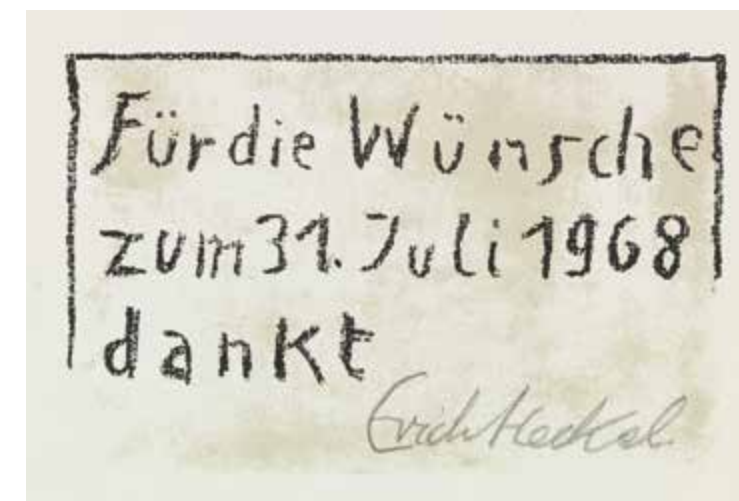 Für die Wünsche
zum 31. Juli 1968
dankt
Erich Heckel.